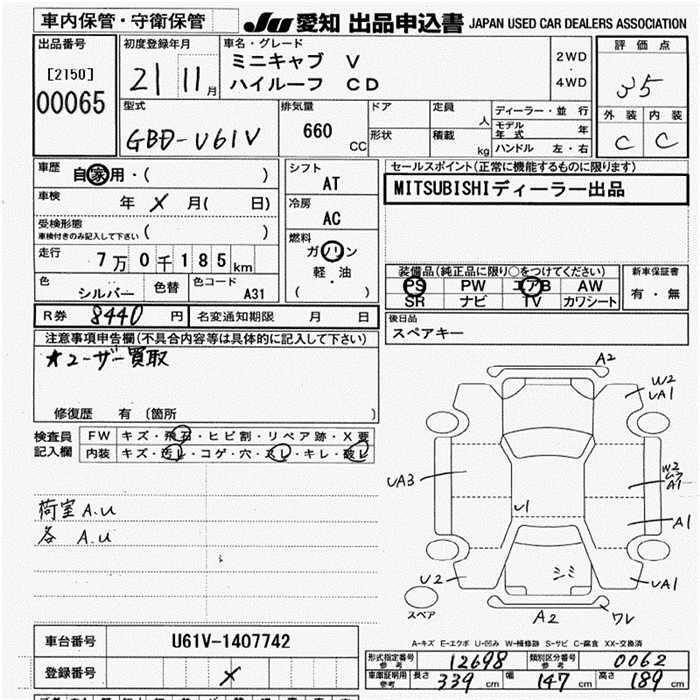 車内保管・守衛保管
JU 愛知 出品申込書 JAPAN USED CAR DEALERS ASSOCIATION
出品番号
[2150]
00065
初度登録年月
21 11月
車名・グレード
ミニキャブ V
ハイルーフ CD
2WD
・
4WD
評価点
35
外装 内装
C C
型式
GBD-U61V
排気量
660 CC
ドア
形状
定員 人
積載 kg
ディーラー・並行
モデル年式 年
ハンドル 左・右
車歴
自家用・( )
車検 年 X 月( 日)
受検形態
車検付きのみ記入して下さい ( )
走行
7万0千185km
色
シルバー
色替
色コード
A31
シフト
AT
冷房
AC
燃料
ガソリン
軽・油
( )
セールスポイント(正常に機能するものに限ります)
MITSUBISHIディーラー出品
装備品(純正品に限り○をつけてください)
PS PW エアB AW
SR ナビ TV カワシート
新車保証書
有・無
後日品
スペアキー
R券 8440 円
名変通知期限 月 日
注意事項申告欄(不具合内容等は具体的に記入して下さい)
★ユーザー買取
修復歴 有 (箇所 )
検査員
記入欄
FW キズ・飛石・ヒビ割・リペア跡・X要
内装 キズ・汚レ・コゲ・穴・スレ・キレ・破レ
荷室A.U
各 A.U
A2
W2
UA1
UA3
W2
A1
U1
A1
U2
シミ
UA1
A2
WV
スペア
A-キズ E-エクボ U-凹み W-補修跡 S-サビ C-腐食 XX-交換済
車台番号
U61V-1407742
登録番号
X
形式指定番号
参考
12698
類別区分番号
参考
0062
車庫証明用
参考
長さ 339 cm
幅 147 cm
高さ 189 cm